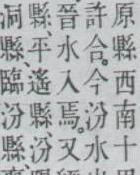 原西南十
許合今汾水
晉水入焉又
縣平遙縣汾
洞縣臨汾縣